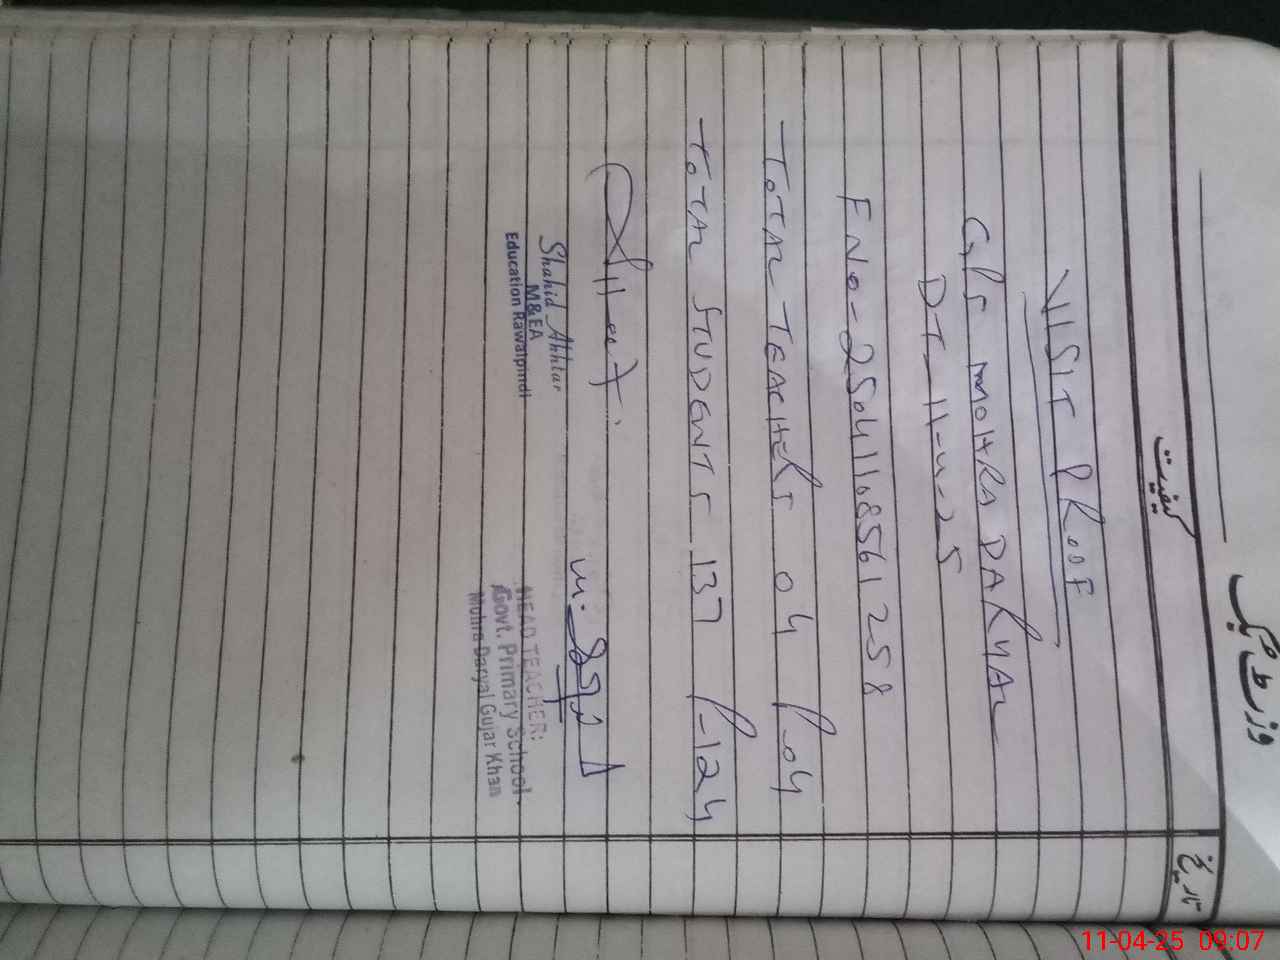 وزٹ بک
کیفیت
تاریخ
VISIT PROOF
GPS MOHRA DARYAL
DT_11-4-25
F NO-25041108561258
TOTAL TEACHERS 04 P-04
TOTAL STUDENTS 137 P-124
Shahid Akhtar
M&EA
Education Rawalpindi
HEAD TEACHER:
Govt. Primary School.
Mohra Daryal Gujar Khan
11-04-25 09:07